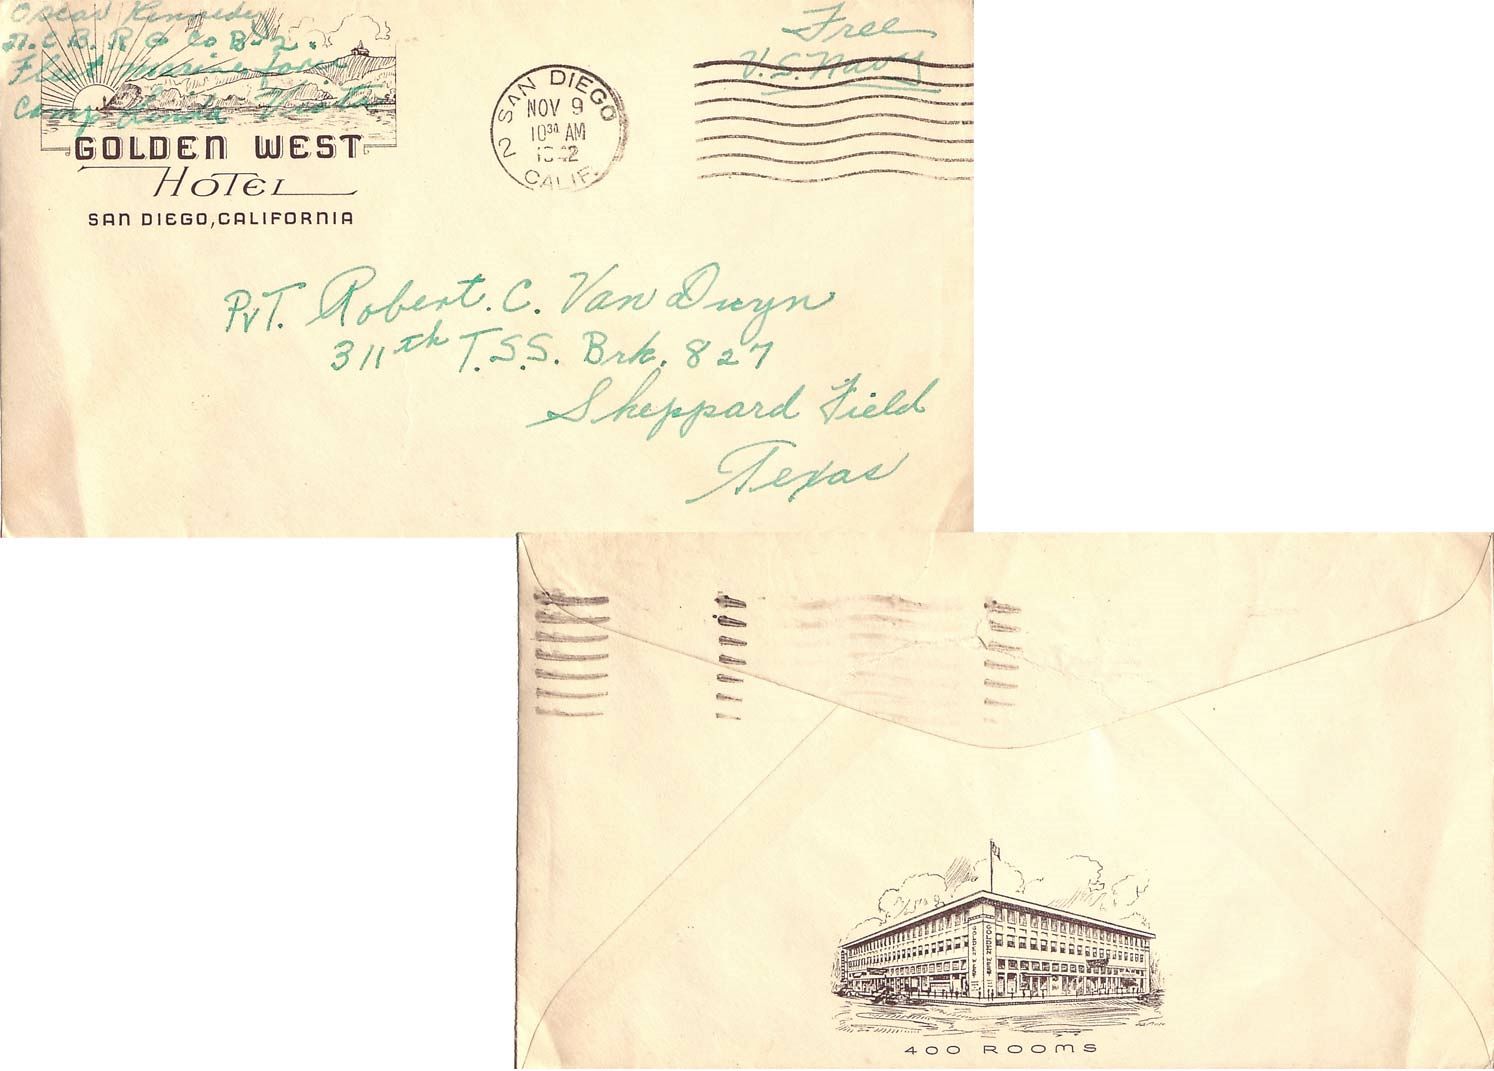 Oscar Kennedy
N.C.B. R G Co B-2.
Fleet Marine Force
Camp Linda Vista
GOLDEN WEST
HOTEL
SAN DIEGO, CALIFORNIA
SAN DIEGO
NOV 9
10 30 AM
1942
2 CALIF.
Free
U.S. Navy
Pvt. Robert. C. Van Duyn
311th T.S.S. Brk. 827
Sheppard Field
Texas
GOLDEN WEST
GOLDEN WEST
400 ROOMS